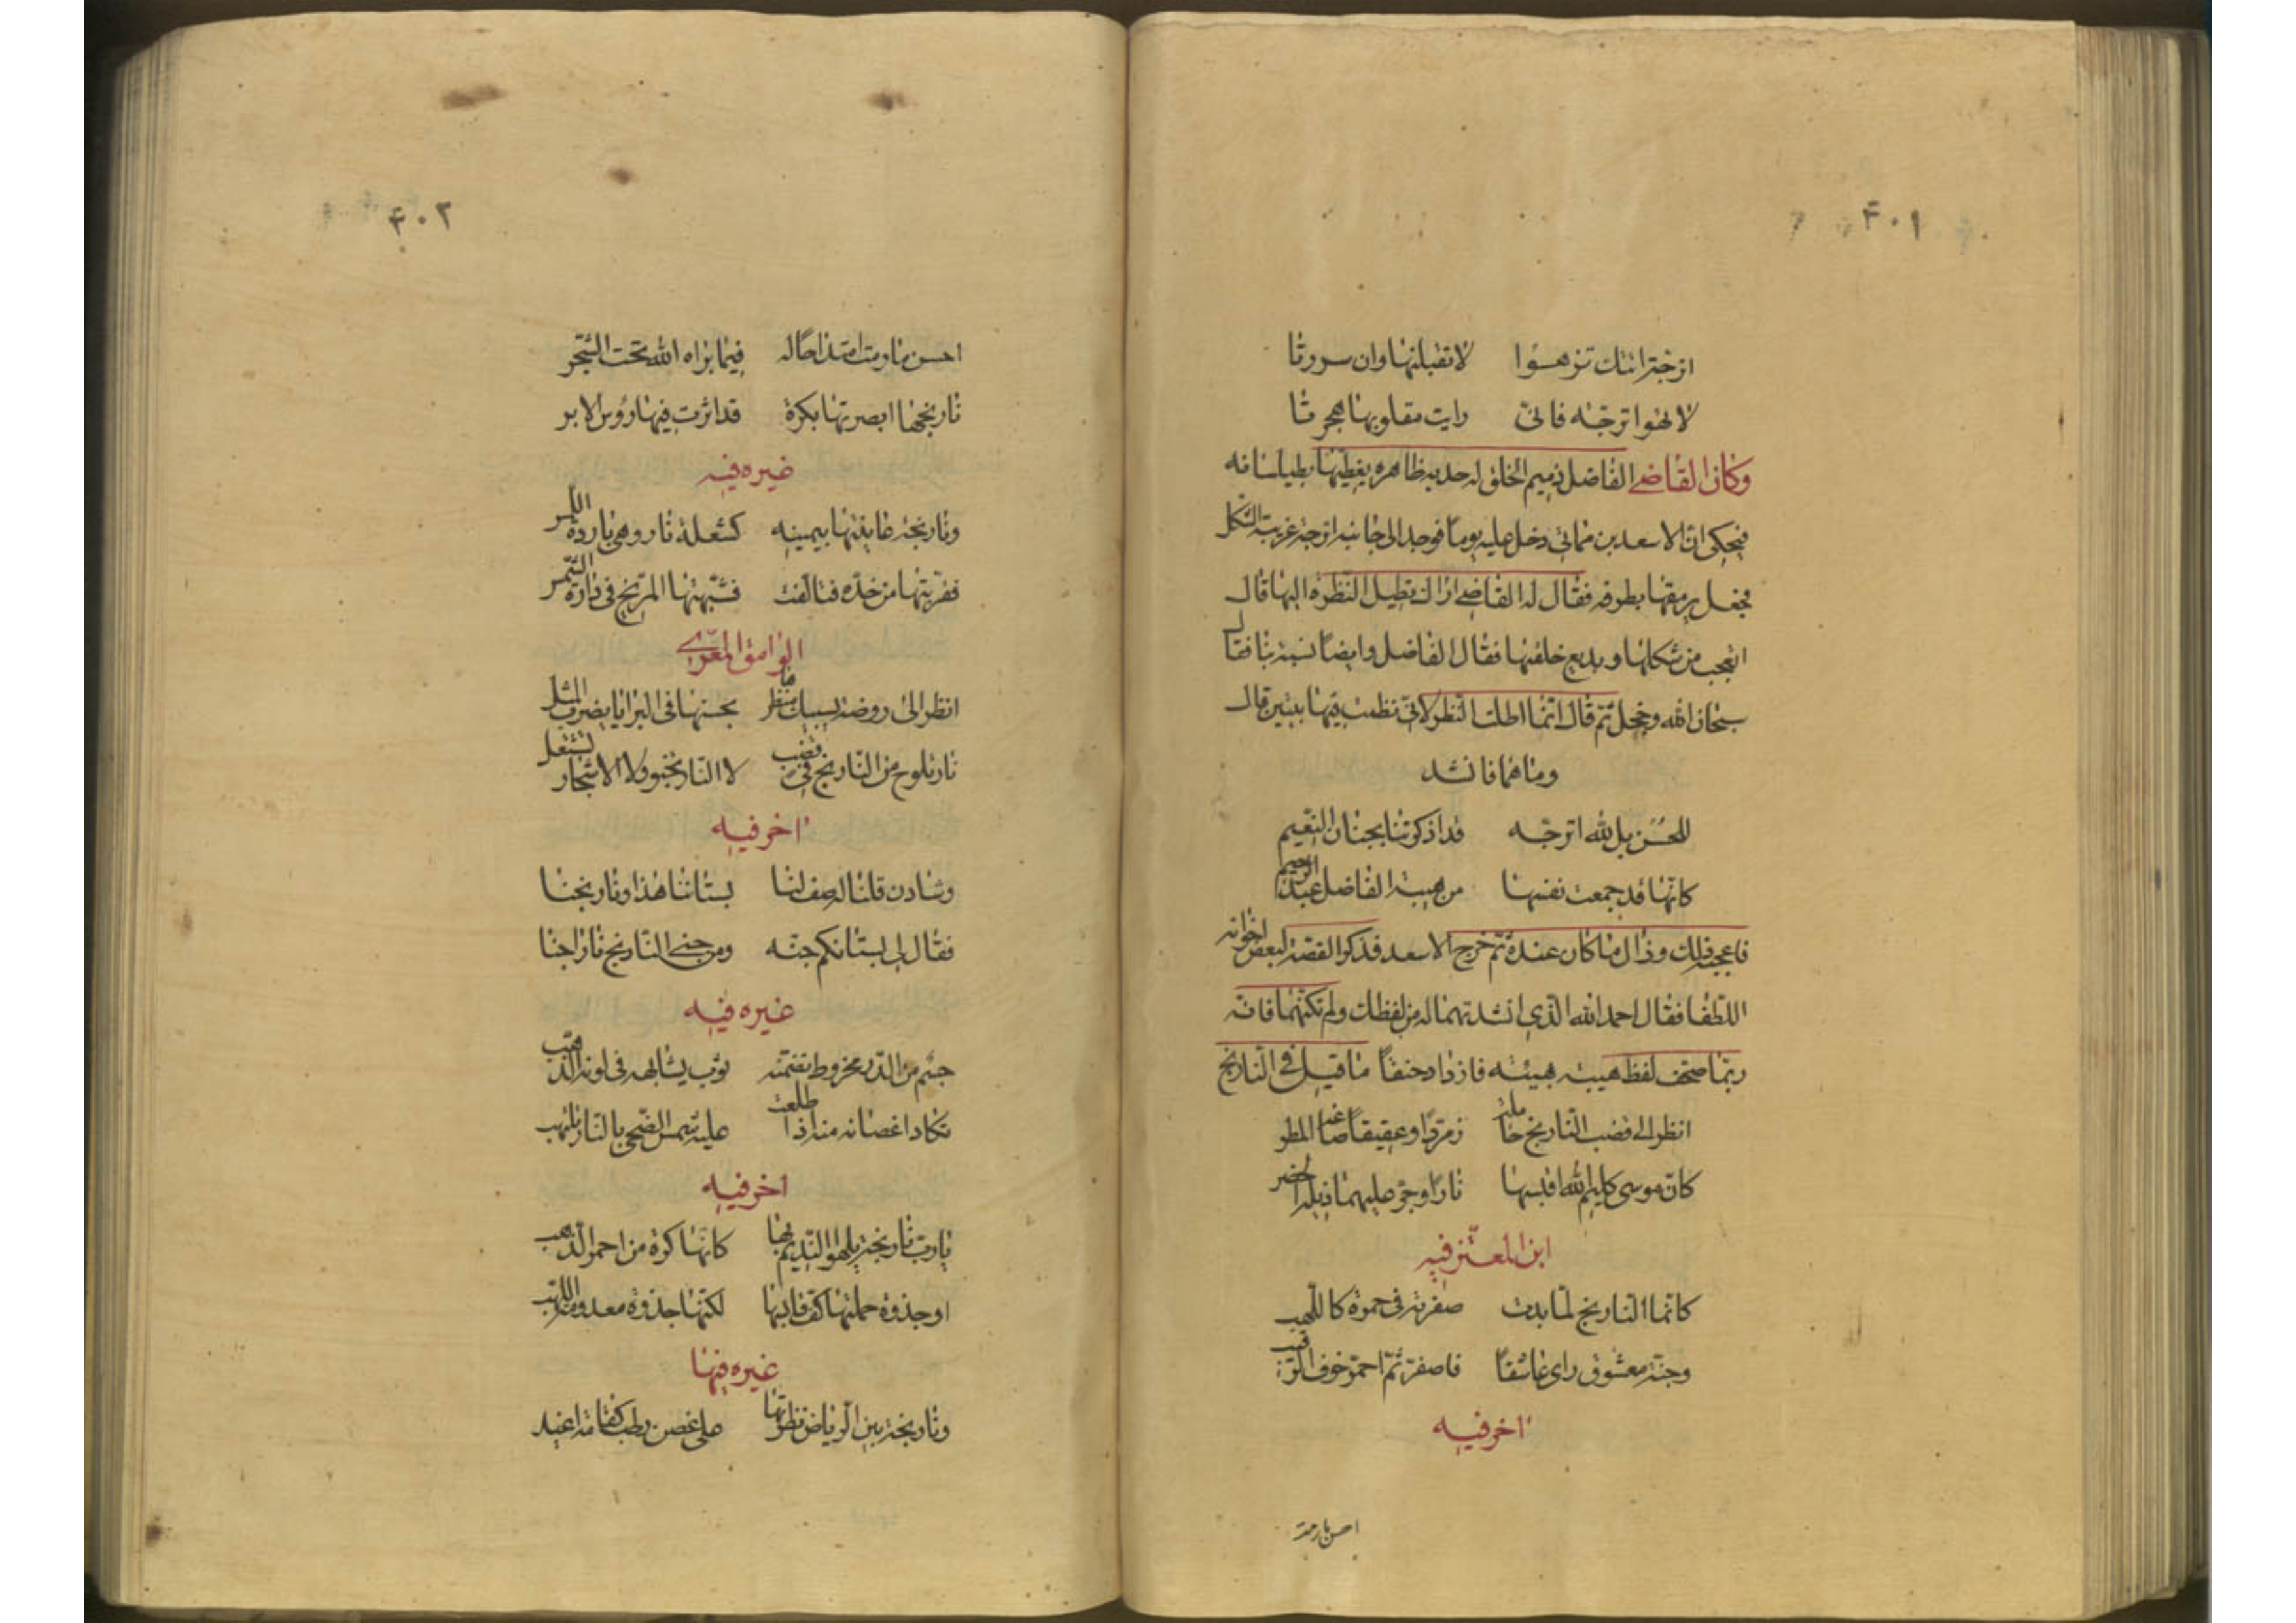 ۴۰۱
اترجتر اتتك تزهوا لا تقبلنها وان سررتا
لا تهوا ترجّه فانى رايت مقلوبها هجرتا
وكان القاضى الفاضل ذميم الخلق له حدبه ظاهره يغطيها بطيلسانه
فيحكى ان الاسعد بن مماتى دخل عليه يوماً فوجد الى جانبه اترجة غريبة الشكل
فجعل يرمقها بطرفه فقال له القاضى اراك تطيل النظره اليها قال
اتعجب من شكلها وبديع خلقها فقال الفاضل وايضاً نسبة بنا فقال
سبحان الله وخجل ثم قال انما اطلت النظر لانى نظمت فيها بيتين قال
وما هما فانشد
للحسن بل لله اترجّه قد اذكرتنا بجنان النعيم
كانها قد جمعت نفسها من هيبة الفاضل عبد الرحيم
فاعجبه ذلك وزال ما كان عنده ثم خرج الاسعد فذكر القصة لبعض اخوانه
اللطفا فقال احمد الله الذى انشدتهما له من لفظك ولم تكتبهما فانه
ربما صحف لفظ هيبه بهيئه فازداد حنقاً ما قيل فى النارنج
انظر الى قضب النارنج حاملة زمرّدا وعقيقاً صاغه المطر
كان موسى كليم الله اقبسها ناراً وجرّ عليها ذيله الخضر
ابن المعتز فيه
كانما النارنج لما بدت صفرته فى حمرة كاللهيب
وجنة معشوق راى عاشقاً فاصفر ثم احمرّ خوف الرقيب
اخر فيه
احسن نارمتد
۴۰۲
احسن ما رمت امتداحا له فيما براه الله تحت الشجر
نارنجها ابصرتها بكرة قد اثرت فيها رؤس الابر
غيره فيه
ونارنجة عاينتها بيمينه كشعلة نار وهى باردة اللمس
فقربتها من خدّه فتالفت فشبهتها المريخ فى دارة الشمس
الوامق المعرّى
انظر الى روضة يسبيك منظرها بحسنها فى البرايا يضرب المثل
نار تلوح من النارنج فى قضب لا النار تخبو ولا الاشجار تشتعل
اخر فيه
وشادن قلنا له صف لنا بستاننا هذا ونارنجنا
فقال لى بستانكم جنّه ومن جنى النارنج ناراً جنا
غيره فيه
جسم من الدر مخروط تضمنه ثوب يشابهه فى لونه الذهب
تكاد اغصانه منه اذا طلعت عليه شمس الضحى بالنار تلتهب
اخر فيه
يا رب نارنجة يلهو النديم بها كانها كرة من احمر الذهب
او جذوة حملتها كف قابسها لكنها جذوة معدومة اللهب
غيره فيها
ونارنجة بين الرياض نظرتها على غصن رطب كقامة اغيد